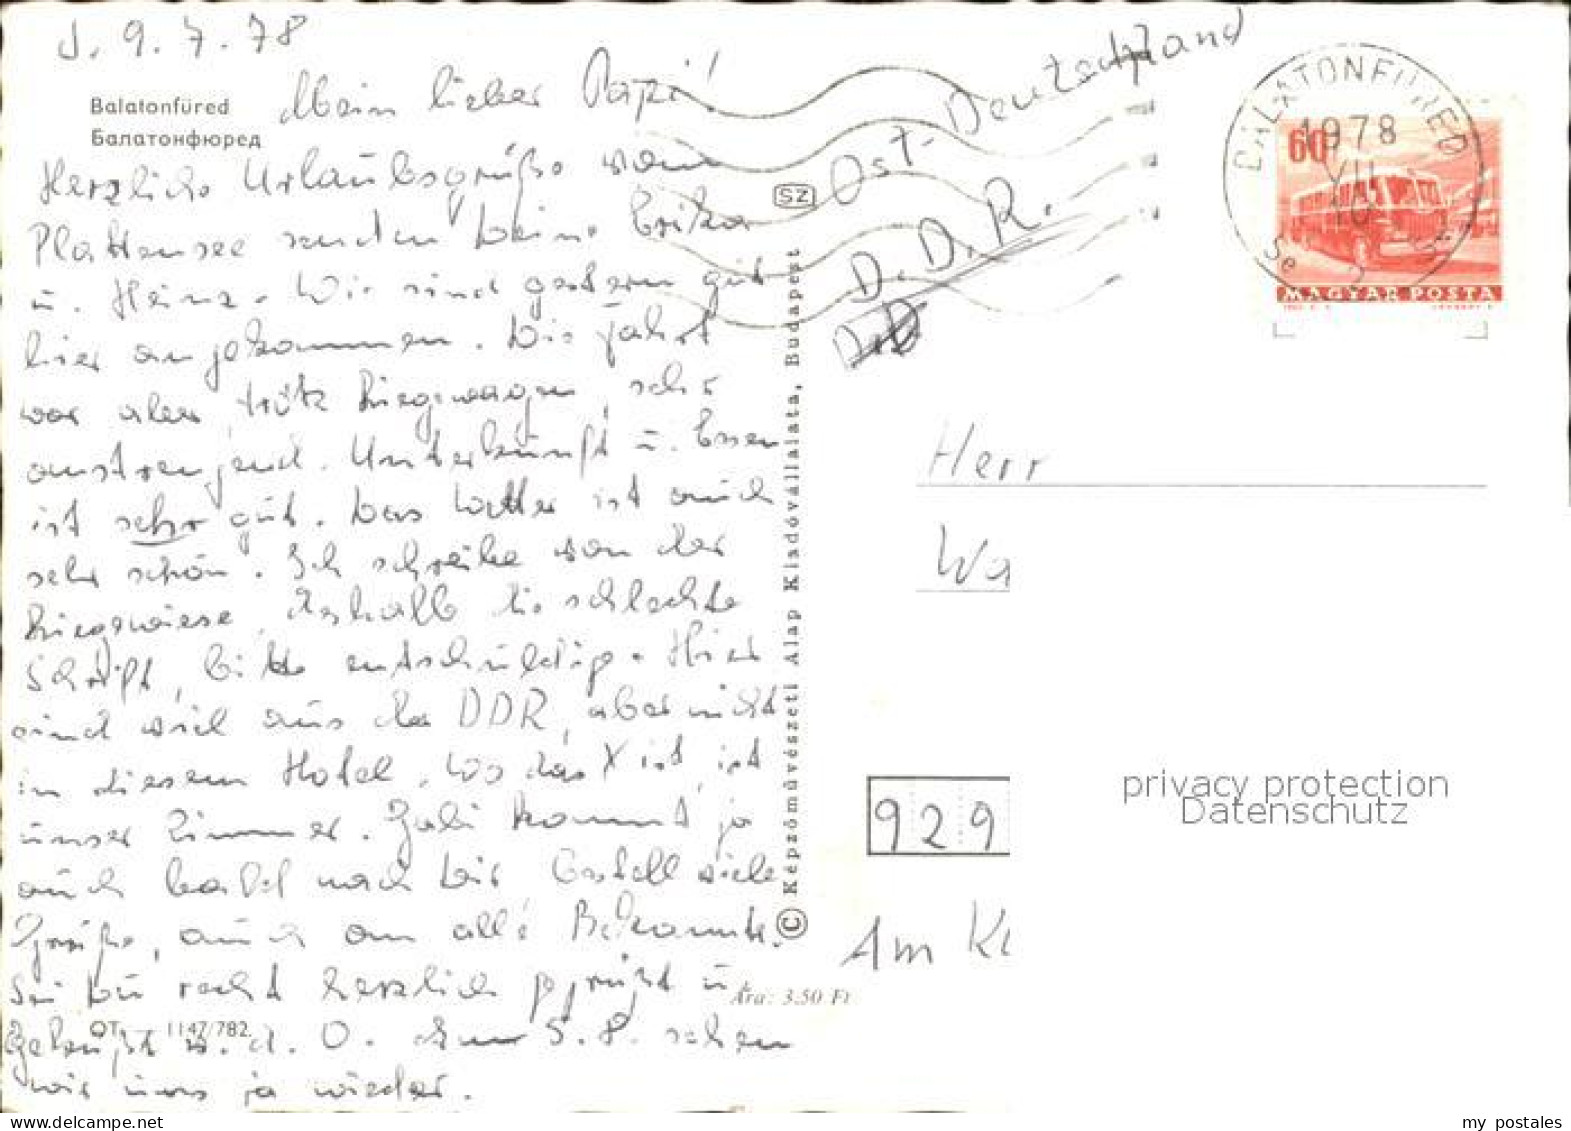 d. 9. 7. 78
Balatonfüred
Балатонфюред
Mein lieber Papi!
Herzliche Urlaubsgrüße vom
Plattensee senden Deine Erika
u. Heinz. Wir sind gestern gut
hier angekommen. Die Fahrt
war aber, trotz Liegewagen, sehr
anstrengend. Unterkunft u. Essen
ist sehr gut. Das Wetter ist auch
sehr schön. Ich schreibe von der
Liegewiese, deshalb die schlechte
Schrift, bitte entschuldige. Hier
sind viel aus der DDR, aber nicht
in diesem Hotel. Wo das X ist, ist
unser Zimmer. Gabi kommt ja
auch bald nach Dir. Bestell viele
Grüße, auch an alle Bekannte.
Sei Du recht herzlich gegrüßt u.
v. d. O. Am 5. 8. sehen
wir uns ja wieder.
OT. - 1147/782
Ára: 3.50 Ft
© Képzőművészeti Alap Kiadóvállalata, Budapest
SZ
Ost-Deutschland
D.D.R.
BALATONFÜRED
1978
VII
10
60
MAGYAR POSTA
Herr
Wa
929
Am Kl
privacy protection
Datenschutz
my postales